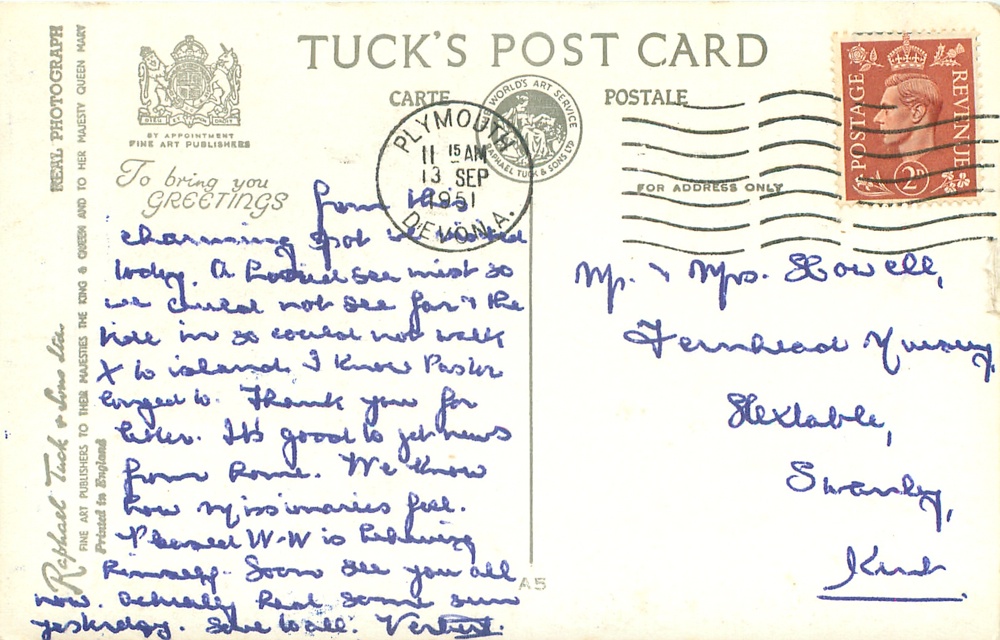 TUCK'S POST CARD
CARTE POSTALE
WORLD'S ART SERVICE
RAPHAEL TUCK & SONS LTD
BY APPOINTMENT
FINE ART PUBLISHERS
PLYMOUTH
11 15 AM
13 SEP
1951
DEVON. A.
POSTAGE REVENUE
2D
FOR ADDRESS ONLY
REAL PHOTOGRAPH
Raphael Tuck & Sons Ltd.
FINE ART PUBLISHERS TO THEIR MAJESTIES THE KING & QUEEN AND TO HER MAJESTY QUEEN MARY
Printed in England
To bring you
GREETINGS
from this
charming spot we visited
today. A sea mist so
we could not see far & the
tide in so could not walk
X to island. I know Pastor
longed to. Thank you for
letter. It's good to get news
from home. We know
how missionaries feel.
Pleased W-W is behaving
himself. Soon see you all
now. Actually had some sun
yesterday. Love to all.
A5
Mr. & Mrs. Howell,
Fernhead Nursery,
Hextable,
Swanley,
Kent